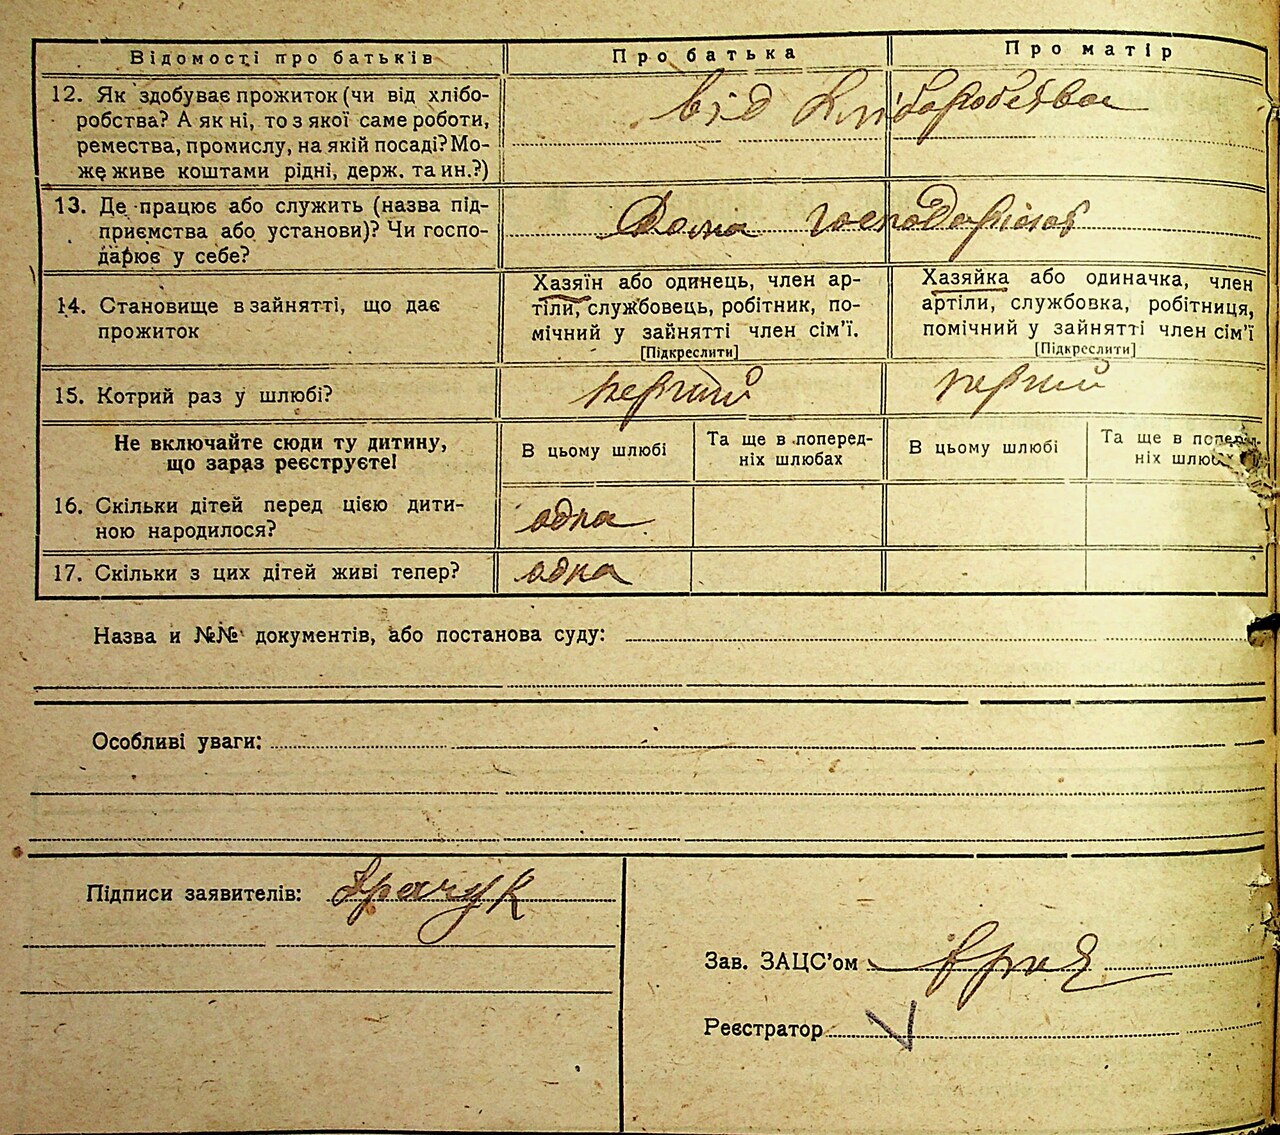 Відомості про батьків Про батька Про матір
12. Як здобуває прожиток (чи від хлібо-
робства? А як ні, то з якої саме роботи,
ремества, промислу, на якій посаді? Мо-
же живе коштами рідні, держ. та ин.?)
від хліборобства
13. Де працює або служить (назва під-
приємства або установи)? Чи госпо-
дарює у себе?
Дома господарюють
14. Становище в зайнятті, що дає
прожиток
Хазяїн або одинець, член ар-
тіли, службовець, робітник, по-
мічний у зайнятті член сім'ї.
[Підкреслити]
Хазяйка або одиначка, член
артіли, службовка, робітниця,
помічний у зайнятті член сім'ї
[Підкреслити]
15. Котрий раз у шлюбі? перший перший
Не включайте сюди ту дитину,
що зараз реєструєте!
В цьому шлюбі
Та ще в поперед-
ніх шлюбах
В цьому шлюбі
Та ще в поперед-
ніх шлюбах
16. Скільки дітей перед цією дити-
ною народилося?
одна
17. Скільки з цих дітей живі тепер? одна
Назва и №№ документів, або постанова суду:
Особливі уваги:
Підписи заявителів:
Зав. ЗАЦС'ом
Реєстратор